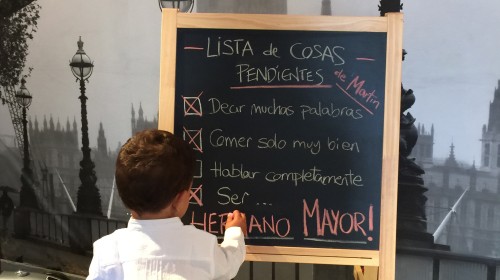 LISTA de COSAS
PENDIENTES
de Martín
Decir muchas palabras
Comer solo muy bien
Hablar completamente
Ser ...
HERMANO MAYOR!